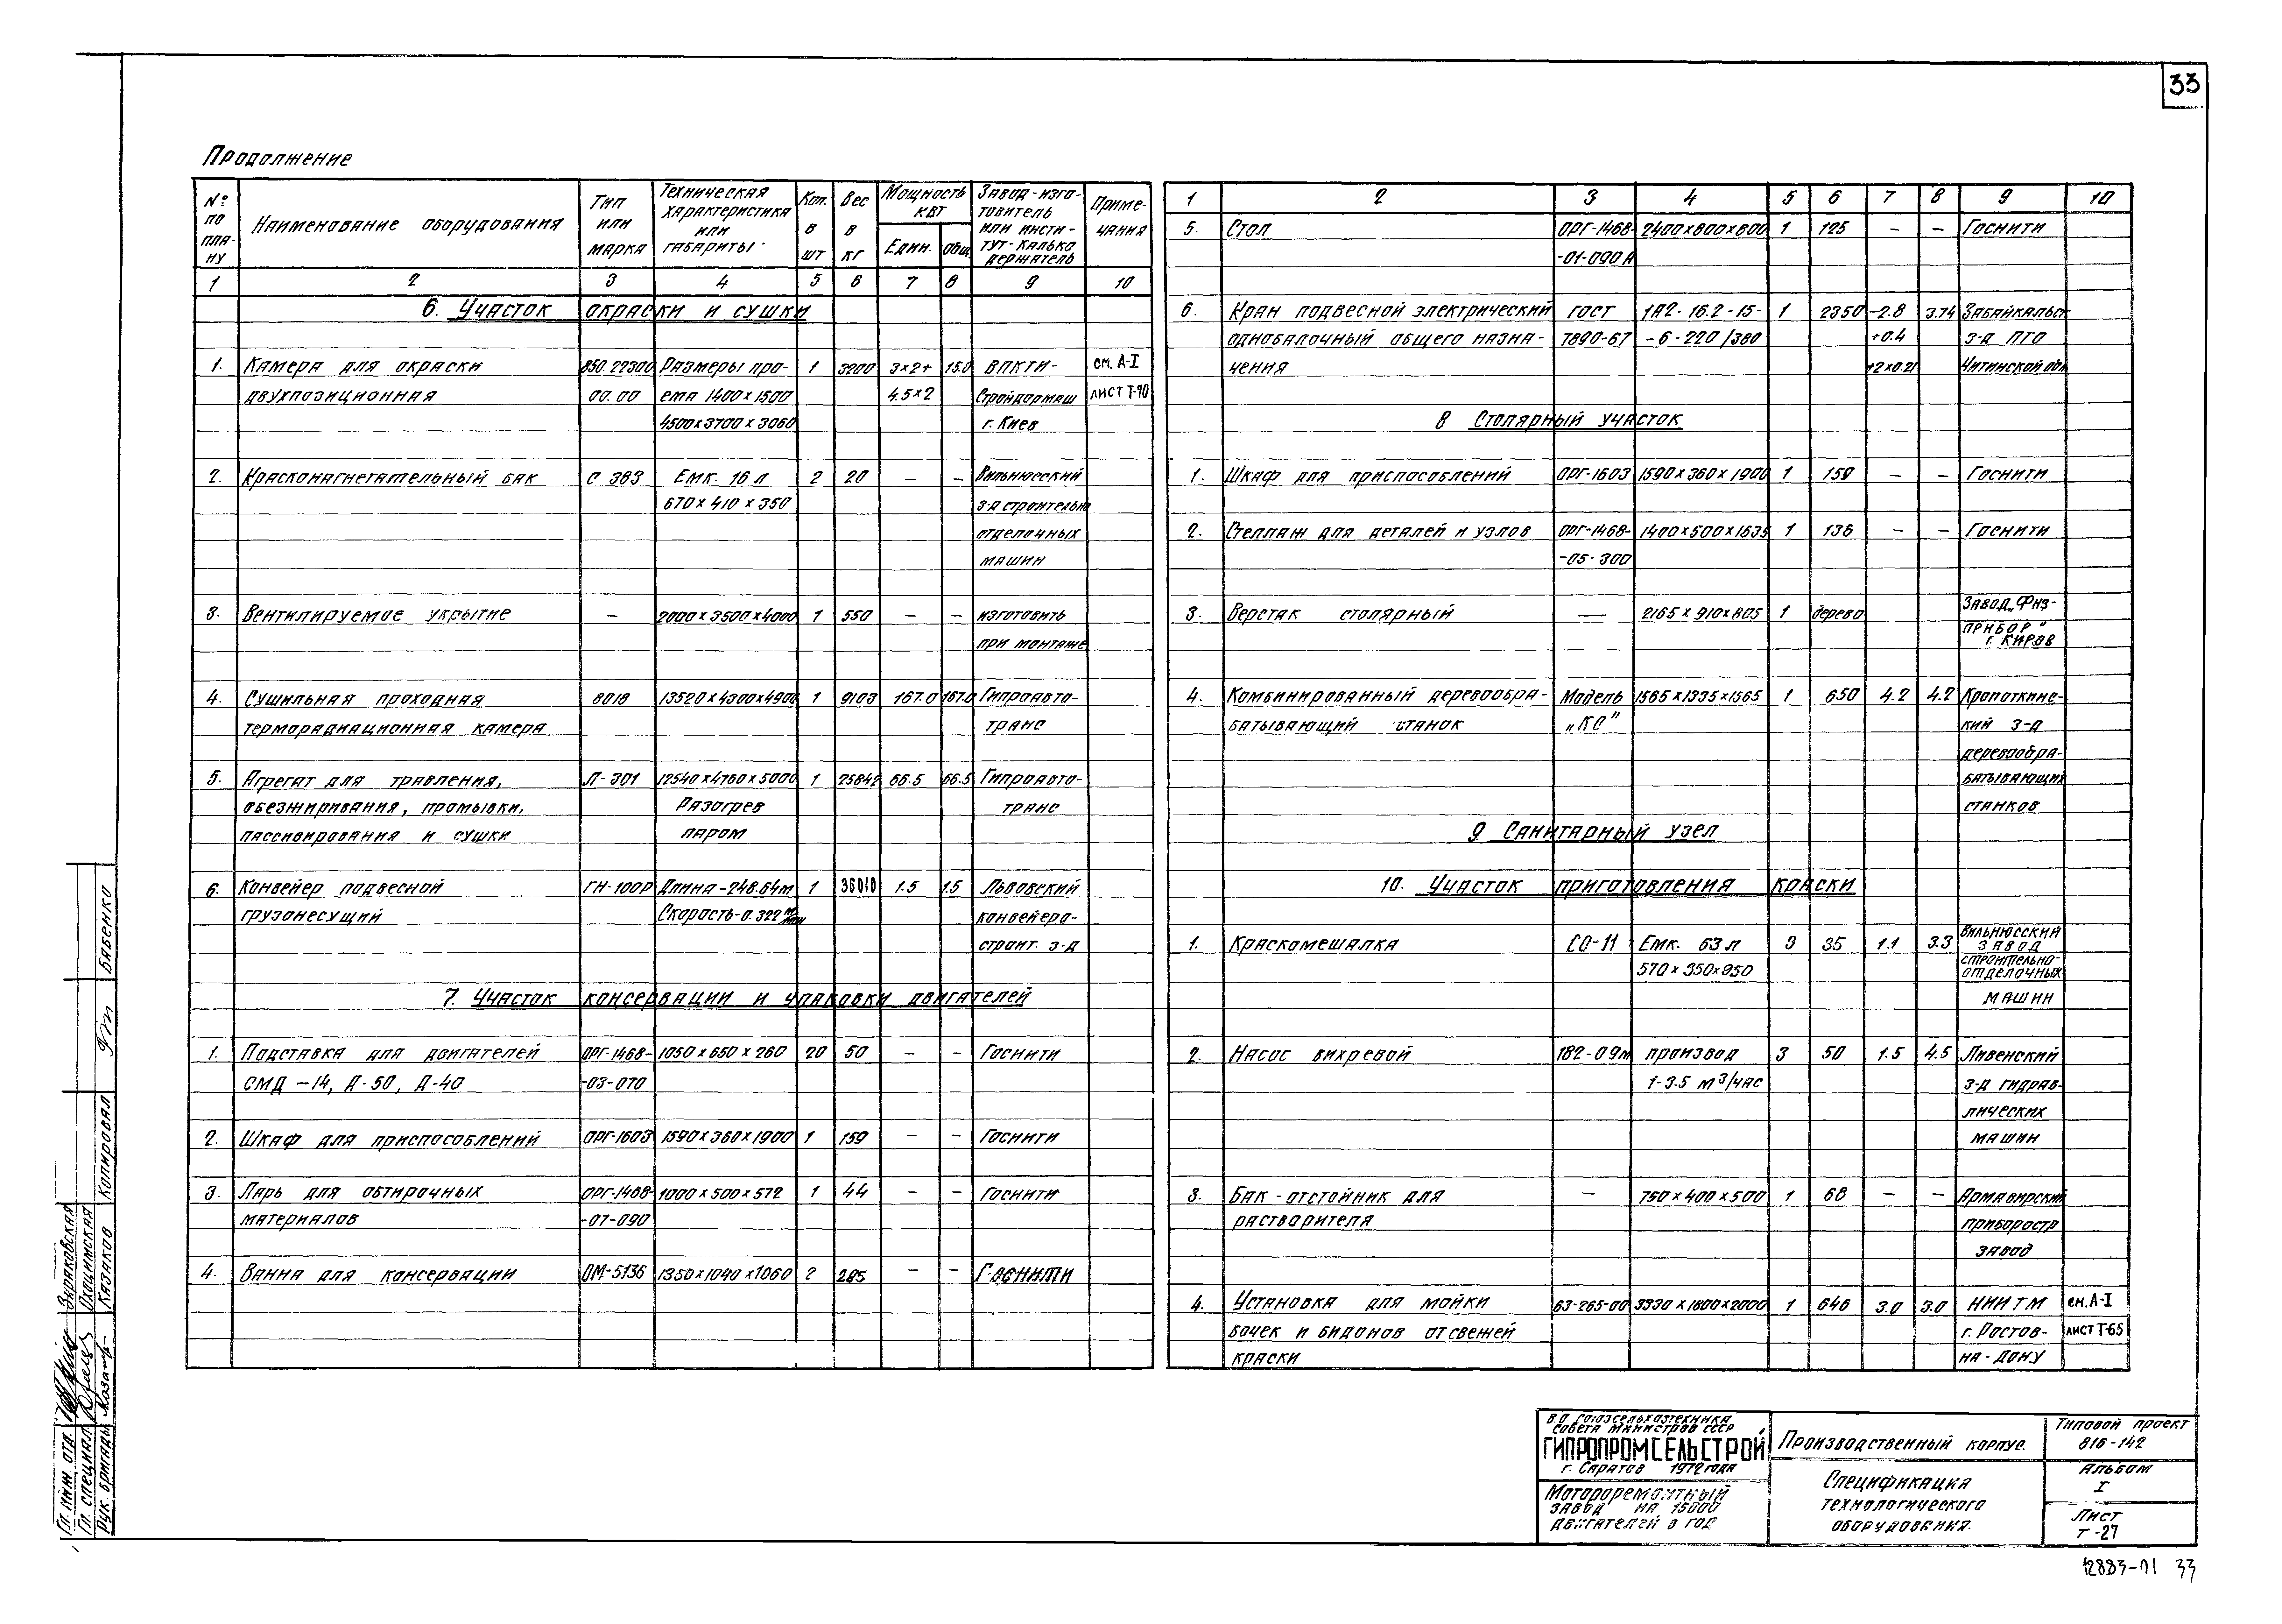 33
Продолжение
№ по плану | Наименование оборудования | Тип или марка | Техническая характеристика или габариты | Кол. в шт | Вес в кг | Мощность квт Един. | общ. | Завод-изготовитель или институт-калькодержатель | Примечания
1 2 3 4 5 6 7 8 9 10
6. Участок окраски и сушки
1. Камера для окраски 850.22300 Размеры про- 1 3200 3×2+ 15.0 ВПКТИ- см. А-I
двухпозиционная 00.00 ема 1400×1500 4.5×2 Стройдормаш лист Т-70
4500×3700×3060 г. Киев
2. Красконагнетательный бак С 383 Емк. 16 л 2 20 – – Вильнюсский
670×410×350 з-д строительно
отделочных
машин
3. Вентилируемое укрытие – 2000×3500×4000 1 550 – – изготовить
при монтаже
4. Сушильная проходная 8018 13520×4300×4900 1 9103 167.0 167.0 Гипроавто-
терморадиационная камера транс
5. Агрегат для травления, Л-301 12540×4760×5000 1 25842 66.5 66.5 Гипроавто-
обезжиривания, промывки, Разогрев транс
пассивирования и сушки паром
6. Конвейер подвесной ГН-100Р Длина-248.64м 1 36010 1.5 1.5 Львовский
грузонесущий Скорость-0.322 м/мин конвейеро-
строит. з-д
7. Участок консервации и упаковки двигателей
1. Подставка для двигателей ОРГ-1468- 1050×650×260 20 50 – – Госнити
СМД-14, Д-50, Д-40 -03-070
2. Шкаф для приспособлений ОРГ-1603 1590×360×1900 1 159 – – Госнити
3. Ларь для обтирочных ОРГ-1468- 1000×500×572 1 44 – – Госнити
материалов -07-090
4. Ванна для консервации ОМ-5136 1350×1040×1060 2 285 – – Госнити
1 2 3 4 5 6 7 8 9 10
5. Стол ОРГ-1468- 2400×800×800 1 125 – – Госнити
-01-090А
6. Кран подвесной электрический ГОСТ 1А2-16.2-15- 1 2350 -2.8 3.74 Забайкальс
однобалочный общего назна- 7890-67 -6-220/380 +0.4 з-д ПТО
чения +2×0.21 Читинской обл
8 Столярный участок
1. Шкаф для приспособлений ОРГ-1603 1590×360×1900 1 159 – – Госнити
2. Стеллаж для деталей и узлов ОРГ-1468- 1400×500×1635 1 136 – – Госнити
-05-300
3. Верстак столярный — 2165×910×805 1 дерево Завод „Физ-
прибор"
г. Киров
4. Комбинированный деревообра- Модель 1565×1335×1565 1 650 4.2 4.2 Кропоткинс-
батывающий станок „КС" кий з-д
деревообра-
батывающих
станков
9. Санитарный узел
10. Участок приготовления краски
1. Краскомешалка СО-11 Емк. 63 л 3 35 1.1 3.3 Вильнюсский
570×350×950 завод
строительно-
отделочных
машин
2. Насос вихревой 1В2-09м производ 3 50 1.5 4.5 Ливенский
1-3.5 м³/час з-д гидрав-
лических
машин
3. Бак-отстойник для – 750×400×500 1 68 – – Армавирский
растварителя приборостр
завод
4. Установка для мойки 63-265-00 3330×1800×2000 1 646 3.0 3.0 НИИТМ см. А-I
бочек и бидонов от свежей г. Ростов- лист Т-65
краски на-Дону
В.О. Союзсельхозтехника
Совета Министров СССР
ГИПРОПРОМСЕЛЬСТРОЙ
г. Саратов 1972 года
Мотороремонтный
завод на 15000
двигателей в год
Производственный корпус.
Спецификация
технологического
оборудования.
Типовой проект
816-142
Альбом
I
Лист
Т-27
12883-01 33
Гл. инж. отд.
Гл. специал. Охоцимская
Рук. бригады Казаков
Копировал Бабенко